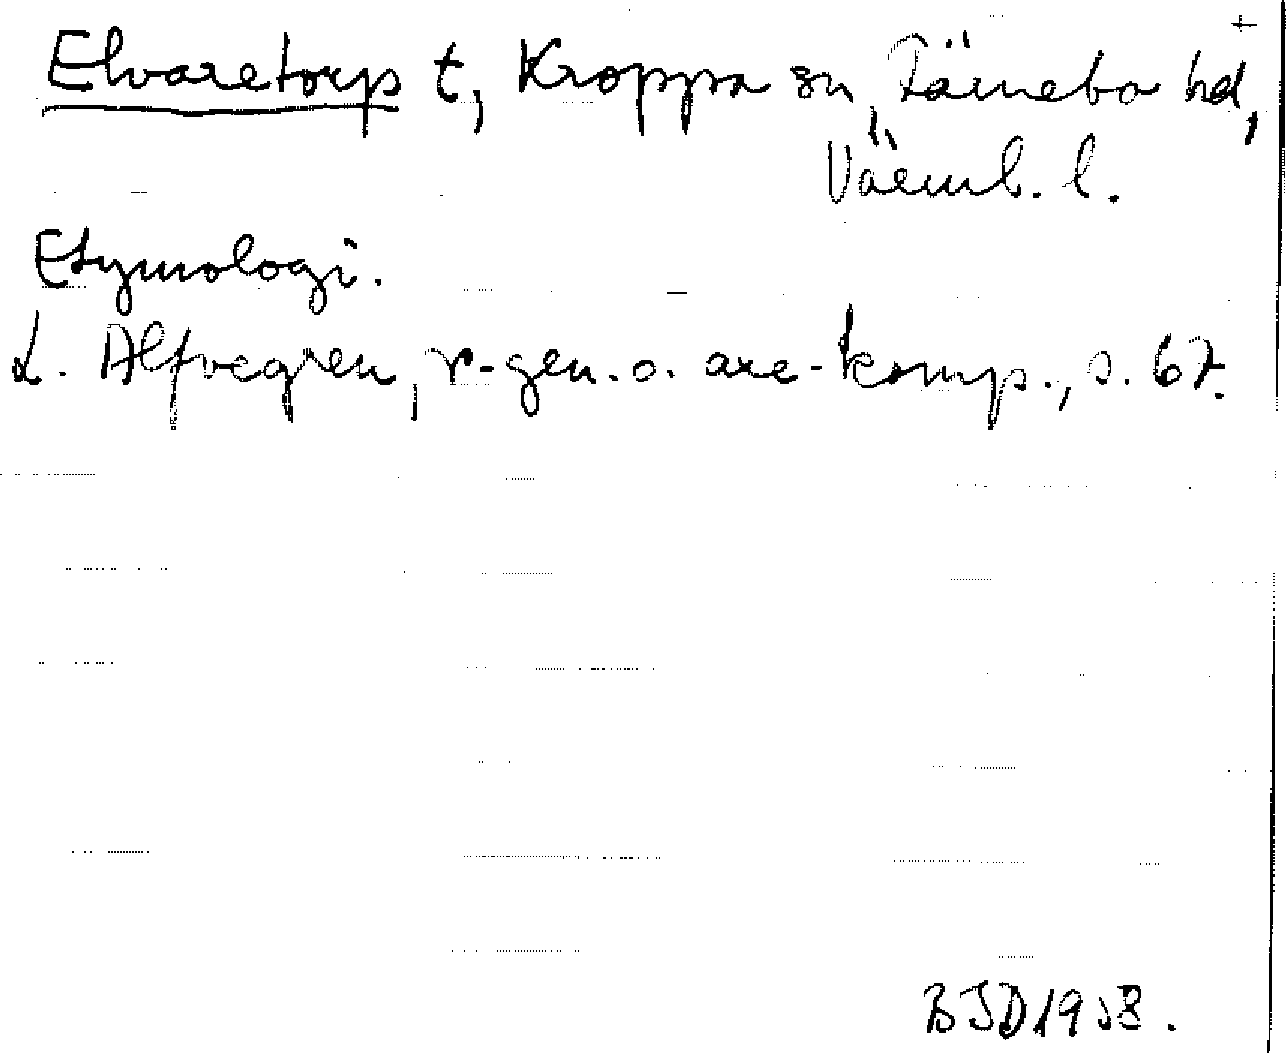 +
Elvaretorp t, Kroppa sn, Färnebo hd,
Värml. l.
Etymologi.
L. Alfvegren, r-gen. o. are-komp., s. 67.
BJD 1958.